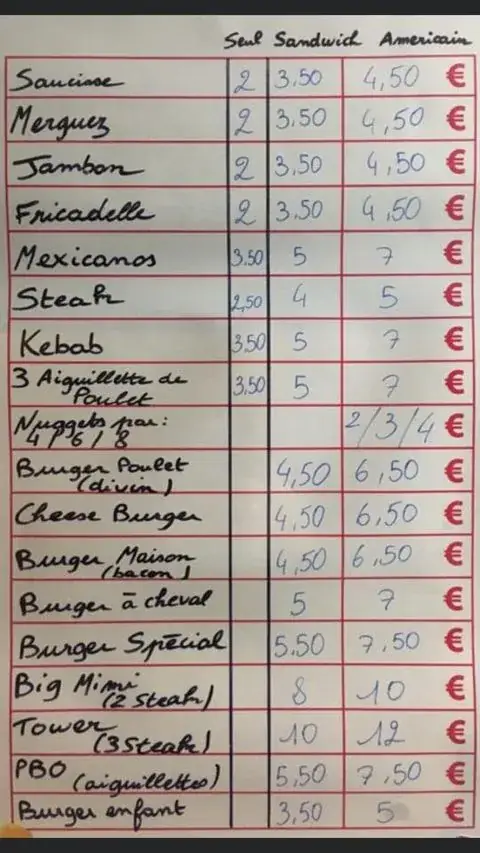 Seul Sandwich Americain
Saucisse 2 3.50 4,50 €
Merguez 2 3.50 4,50 €
Jambon 2 3,50 4,50 €
Fricadelle 2 3.50 4,50 €
Mexicanos 3.50 5 7 €
Steak 2,50 4 5 €
Kebab 3.50 5 7 €
3 Aiguillette de
Poulet 3,50 5 7 €
Nuggets par:
4/6/8 2/3/4 €
Burger Poulet
(divin) 4,50 6,50 €
Cheese Burger 4,50 6,50 €
Burger Maison
(bacon) 4,50 6,50 €
Burger à cheval 5 7 €
Burger Spécial 5.50 7,50 €
Big Mimi
(2 Steak) 8 10 €
Tower
(3 Steak) 10 12 €
PBO
(aiguillettes) 5,50 7,50 €
Burger enfant 3,50 5 €